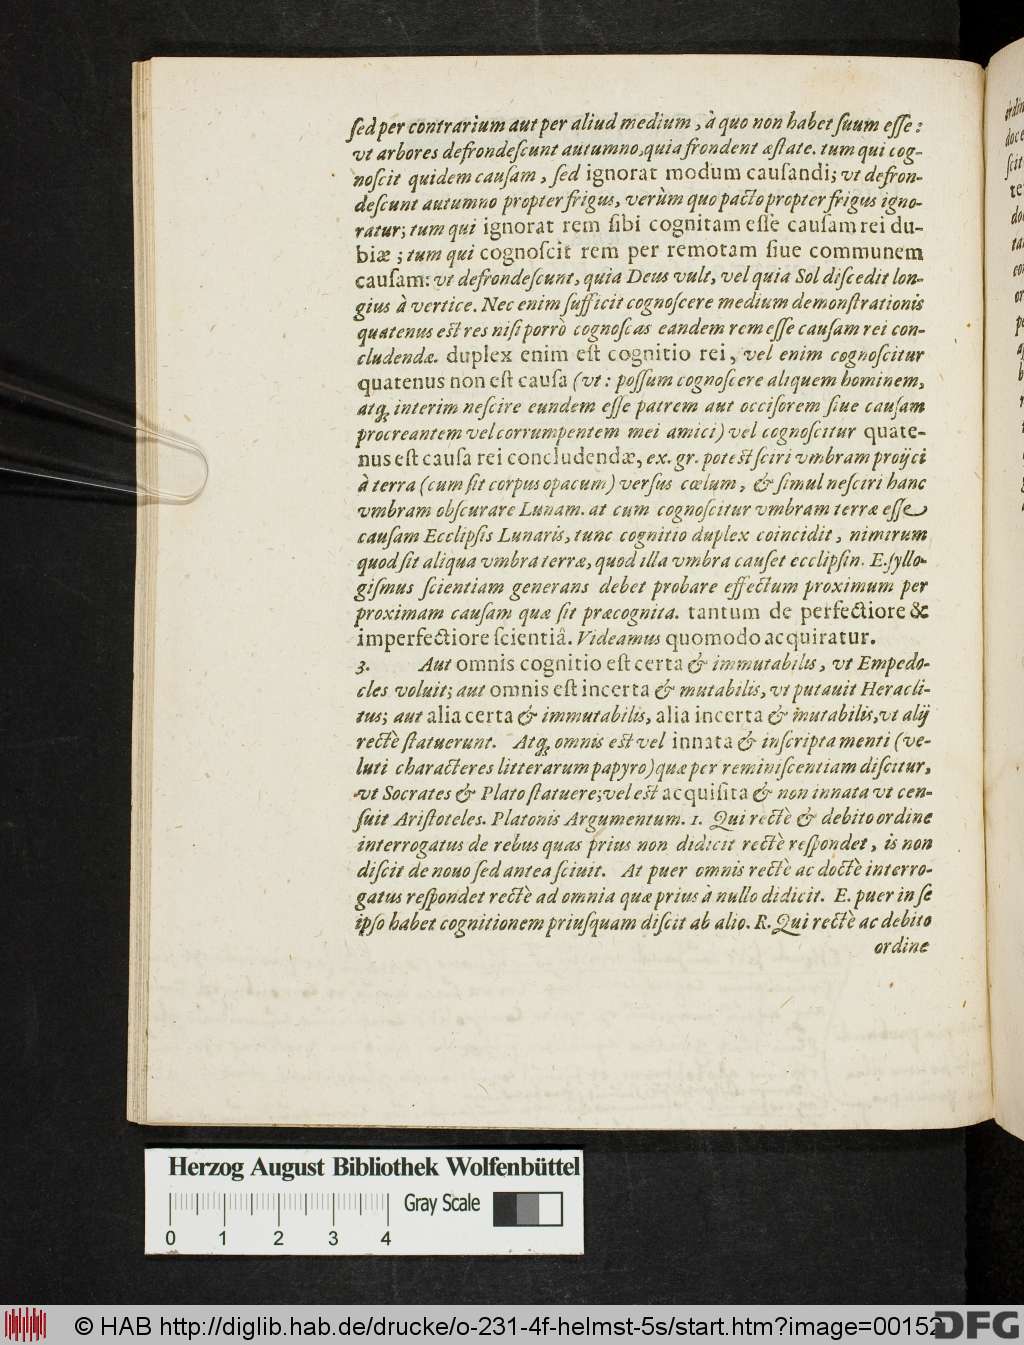 ſed per contrarium aut per aliud medium, à quo non habet ſuum eſſe:
vt arbores defrondeſcunt autumno, quia frondent æſtate. tum qui cog-
noſcit quidem cauſam, ſed ignorat modum cauſandi; vt defron-
deſcunt autumno propter frigus, verùm quo pacto propter frigus igno-
ratur; tum qui ignorat rem ſibi cognitam eſſe cauſam rei du-
biæ; tum qui cognoſcit rem per remotam ſiue communem
cauſam: vt defrondeſcunt, quia Deus vult, vel quia Sol diſcedit lon-
gius à vertice. Nec enim ſufficit cognoſcere medium demonſtrationis
quatenus eſt res niſi porrò cognoſcas eandem rem eſſe cauſam rei con-
cludendæ. duplex enim eſt cognitio rei, vel enim cognoſcitur
quatenus non eſt cauſa (vt: poſſum cognoſcere aliquem hominem,
atq; interim neſcire eundem eſſe patrem aut occiſorem ſiue cauſam
procreantem vel corrumpentem mei amici) vel cognoſcitur quate-
nus eſt cauſa rei concludendæ, ex. gr. poteſt ſciri vmbram proijci
à terra (cum ſit corpus opacum) verſus cœlum, & ſimul neſciri hanc
vmbram obſcurare Lunam. at cum cognoſcitur vmbram terræ eſſe
cauſam Ecclipſis Lunaris, tunc cognitio duplex coincidit, nimirum
quod ſit aliqua vmbra terræ, quod illa vmbra cauſet ecclipſin. E. ſyllo-
giſmus ſcientiam generans debet probare effectum proximum per
proximam cauſam quæ ſit præcognita. tantum de perfectiore &
imperfectiore ſcientiâ. Videamus quomodo acquiratur.
3. Aut omnis cognitio eſt certa & immutabilis, vt Empedo-
cles voluit; aut omnis eſt incerta & mutabilis, vt putauit Heracli-
tus; aut alia certa & immutabilis, alia incerta & mutabilis, vt alij
rectè ſtatuerunt. Atq; omnis eſt vel innata & inſcripta menti (ve-
luti characteres litterarum papyro) quæ per reminiſcentiam diſcitur,
vt Socrates & Plato ſtatuere; vel eſt acquiſita & non innata vt cen-
ſuit Ariſtoteles. Platonis Argumentum. 1. Qui rectè & debito ordine
interrogatus de rebus quas prius non didicit rectè reſpondet, is non
diſcit de nouo ſed antea ſciuit. At puer omnis rectè ac doctè interro-
gatus reſpondet rectè ad omnia quæ prius à nullo didicit. E. puer in ſe
ipſo habet cognitionem priuſquam diſcit ab alio. R. Qui rectè ac debito
ordine
Herzog August Bibliothek Wolfenbüttel
Gray Scale
0 1 2 3 4
© HAB http://diglib.hab.de/drucke/o-231-4f-helmst-5s/start.htm?image=00152
DFG